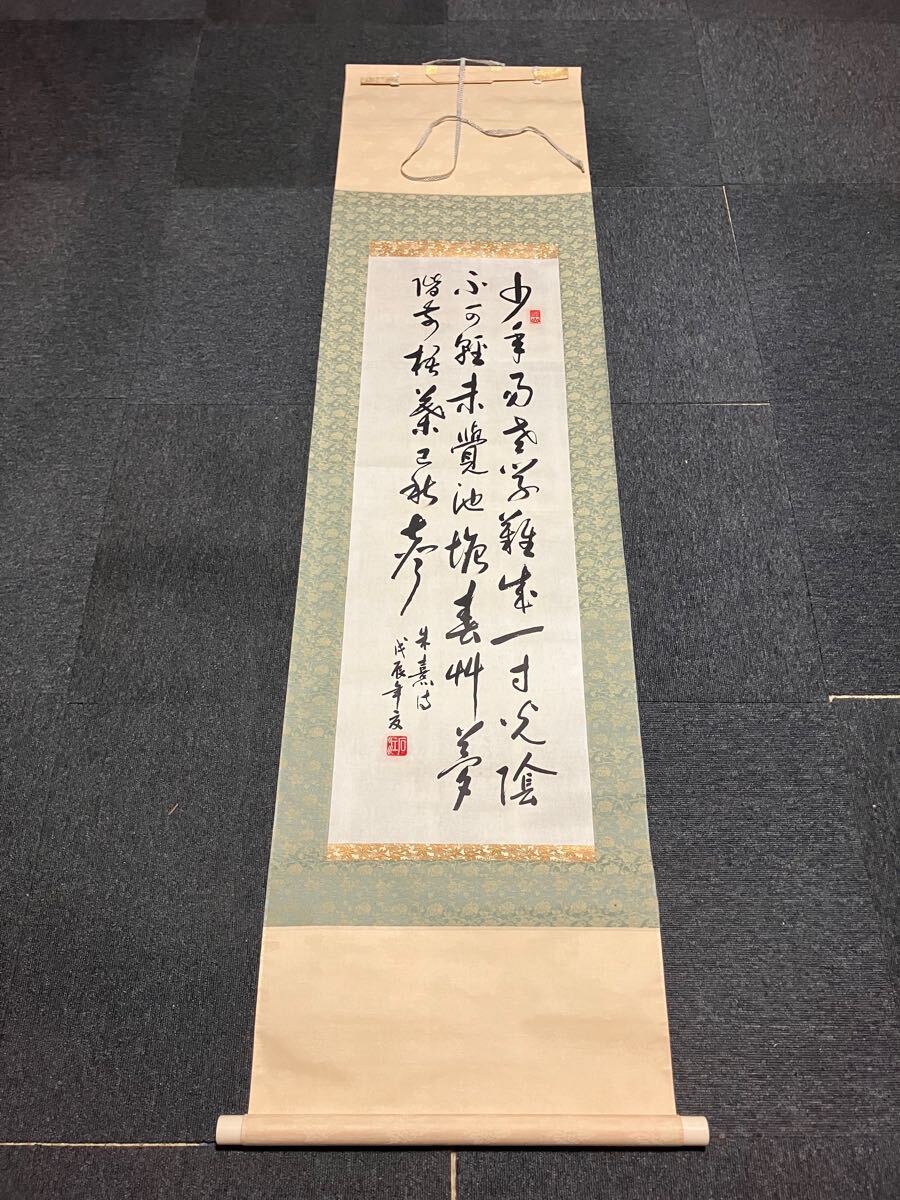 少年易老学難成一寸光陰
不可軽未覺池塘春艸夢
階前梧葉已秋声
朱熹詩
戊辰年夏